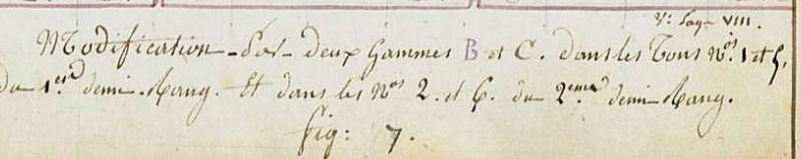 V: Page VIII.
Modification des deux Gammes B et C. dans les Tons Nos. 1 et 5.
du 1er demi-Rang. Et dans les Nos 2. et 6. du 2eme demi-Rang.
fig: 7.